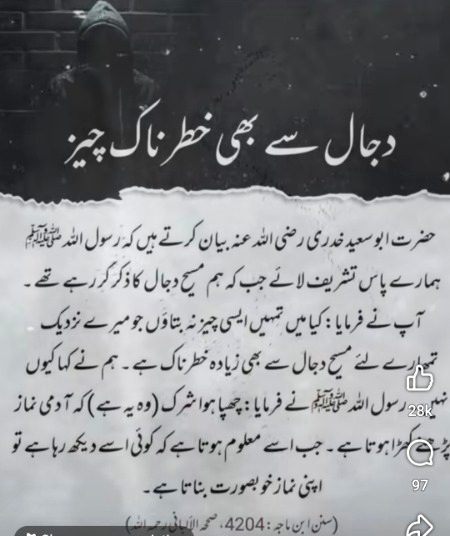 دجال سے بھی خطرناک چیز
حضرت ابوسعید خدری رضی اللہ عنہ بیان کرتے ہیں کہ رسول اللہ ﷺ
ہمارے پاس تشریف لائے جب کہ ہم مسیح دجال کا ذکر کر رہے تھے ۔
آپ نے فرمایا: کیا میں تمہیں ایسی چیز نہ بتاؤں جو میرے نزدیک
تمہارے لئے مسیح دجال سے بھی زیادہ خطرناک ہے ۔ ہم نے کہا کیوں
نہیں رسول اللہ ﷺ نے فرمایا: چھپا ہوا شرک (وہ یہ ہے) کہ آدمی نماز
کھڑا ہوتا ہے ۔ جب اسے معلوم ہوتا ہے کہ کوئی اسے دیکھ رہا ہے تو
اپنی نماز خوبصورت بناتا ہے ۔
(سنن ابن ماجہ: 4204، صححہ الألبانی رحمہ اللہ)
28k
97